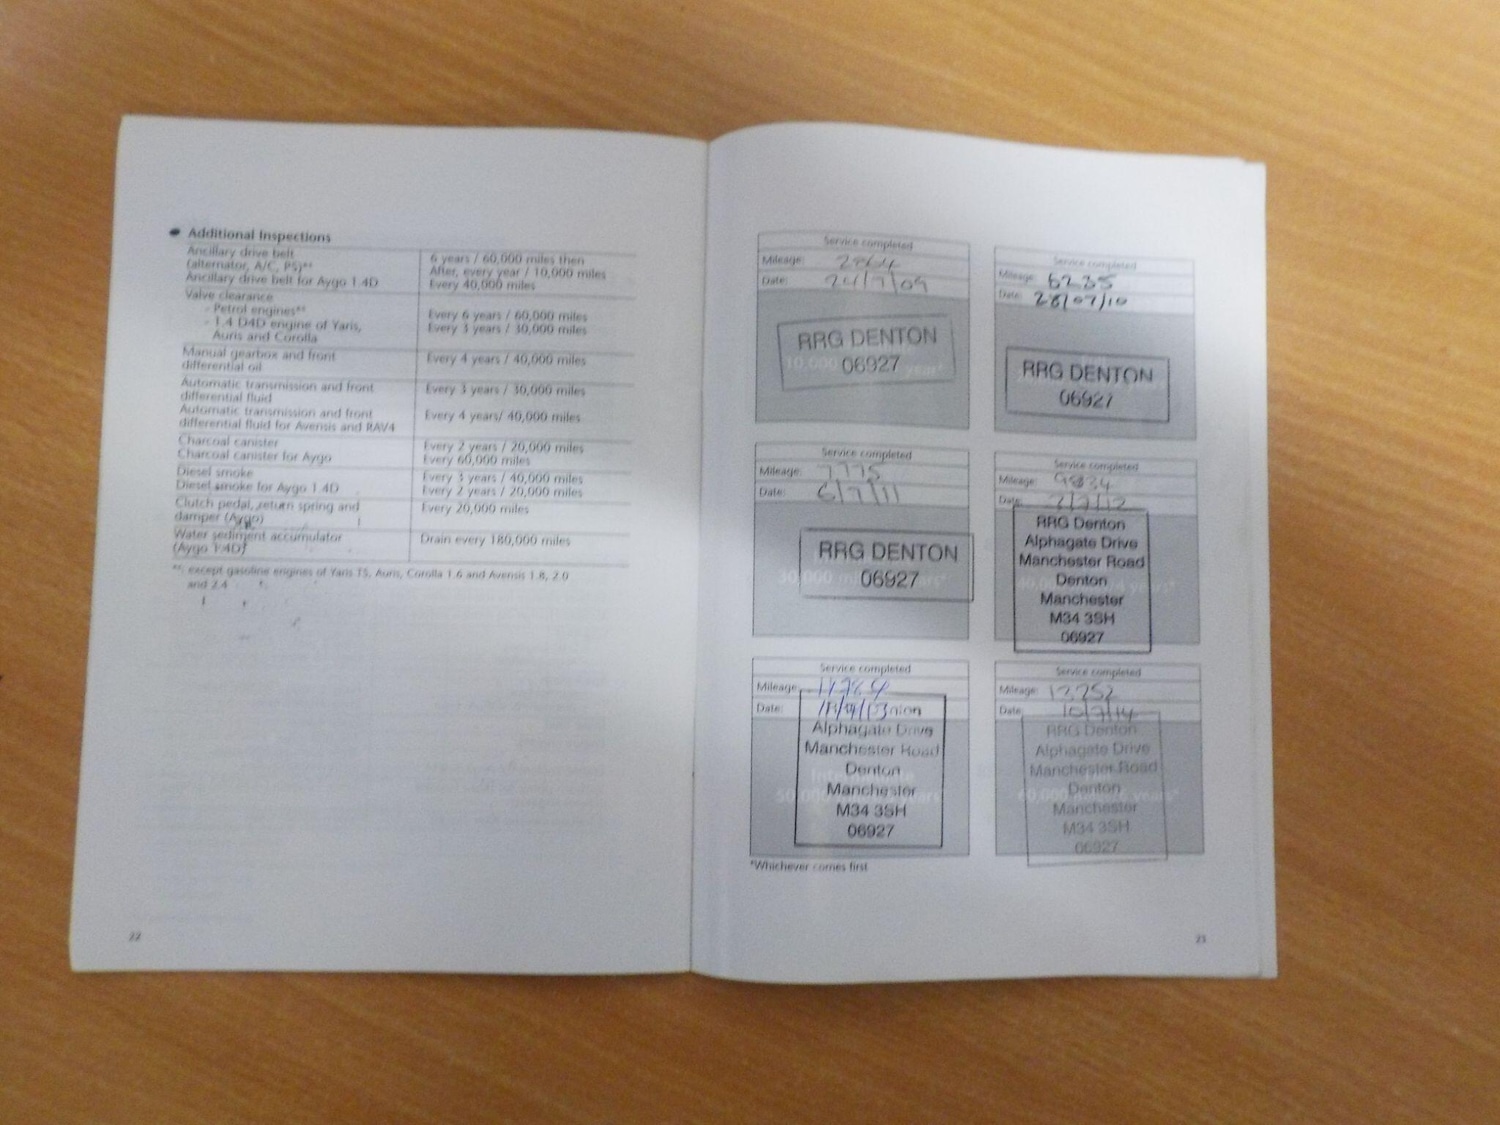 Additional Inspections
Ancillary drive belt
(alternator, A/C, PS)**
6 years / 60,000 miles then
After, every year / 10,000 miles
Ancillary drive belt for Aygo 1.4D
Every 40,000 miles
Valve clearance
- Petrol engines**
Every 6 years / 60,000 miles
- 1.4 D4D engine of Yaris,
Auris and Corolla
Every 3 years / 30,000 miles
Manual gearbox and front
differential oil
Every 4 years / 40,000 miles
Automatic transmission and front
differential fluid
Every 3 years / 30,000 miles
Automatic transmission and front
differential fluid for Avensis and RAV4
Every 4 years/ 40,000 miles
Charcoal canister
Every 2 years / 20,000 miles
Charcoal canister for Aygo
Every 60,000 miles
Diesel smoke
Every 3 years / 40,000 miles
Diesel smoke for Aygo 1.4D
Every 2 years / 20,000 miles
Clutch pedal, return spring and
damper (Aygo)
Every 20,000 miles
Water sediment accumulator
(Aygo 1.4D)
Drain every 180,000 miles
**: except gasoline engines of Yaris TS, Auris, Corolla 1.6 and Avensis 1.8, 2.0
and 2.4
22
Service completed
Mileage:
Date: 24/7/09
RRG DENTON
06927
Service completed
Mileage: 6235
Date: 28/07/10
RRG DENTON
06927
Service completed
Mileage: 7775
Date: 6/7/11
RRG DENTON
06927
30,000
Service completed
Mileage: 9834
Date: 2/7/12
RRG Denton
Alphagate Drive
Manchester Road
Denton
Manchester
M34 3SH
06927
Service completed
Mileage:
Date:
Alphagate Drive
Manchester Road
Denton
Manchester
M34 3SH
06927
Service completed
Mileage: 12252
Date: 10/7/14
RRG Denton
Alphagate Drive
Manchester Road
Denton
Manchester
M34 3SH
06927
*Whichever comes first
23